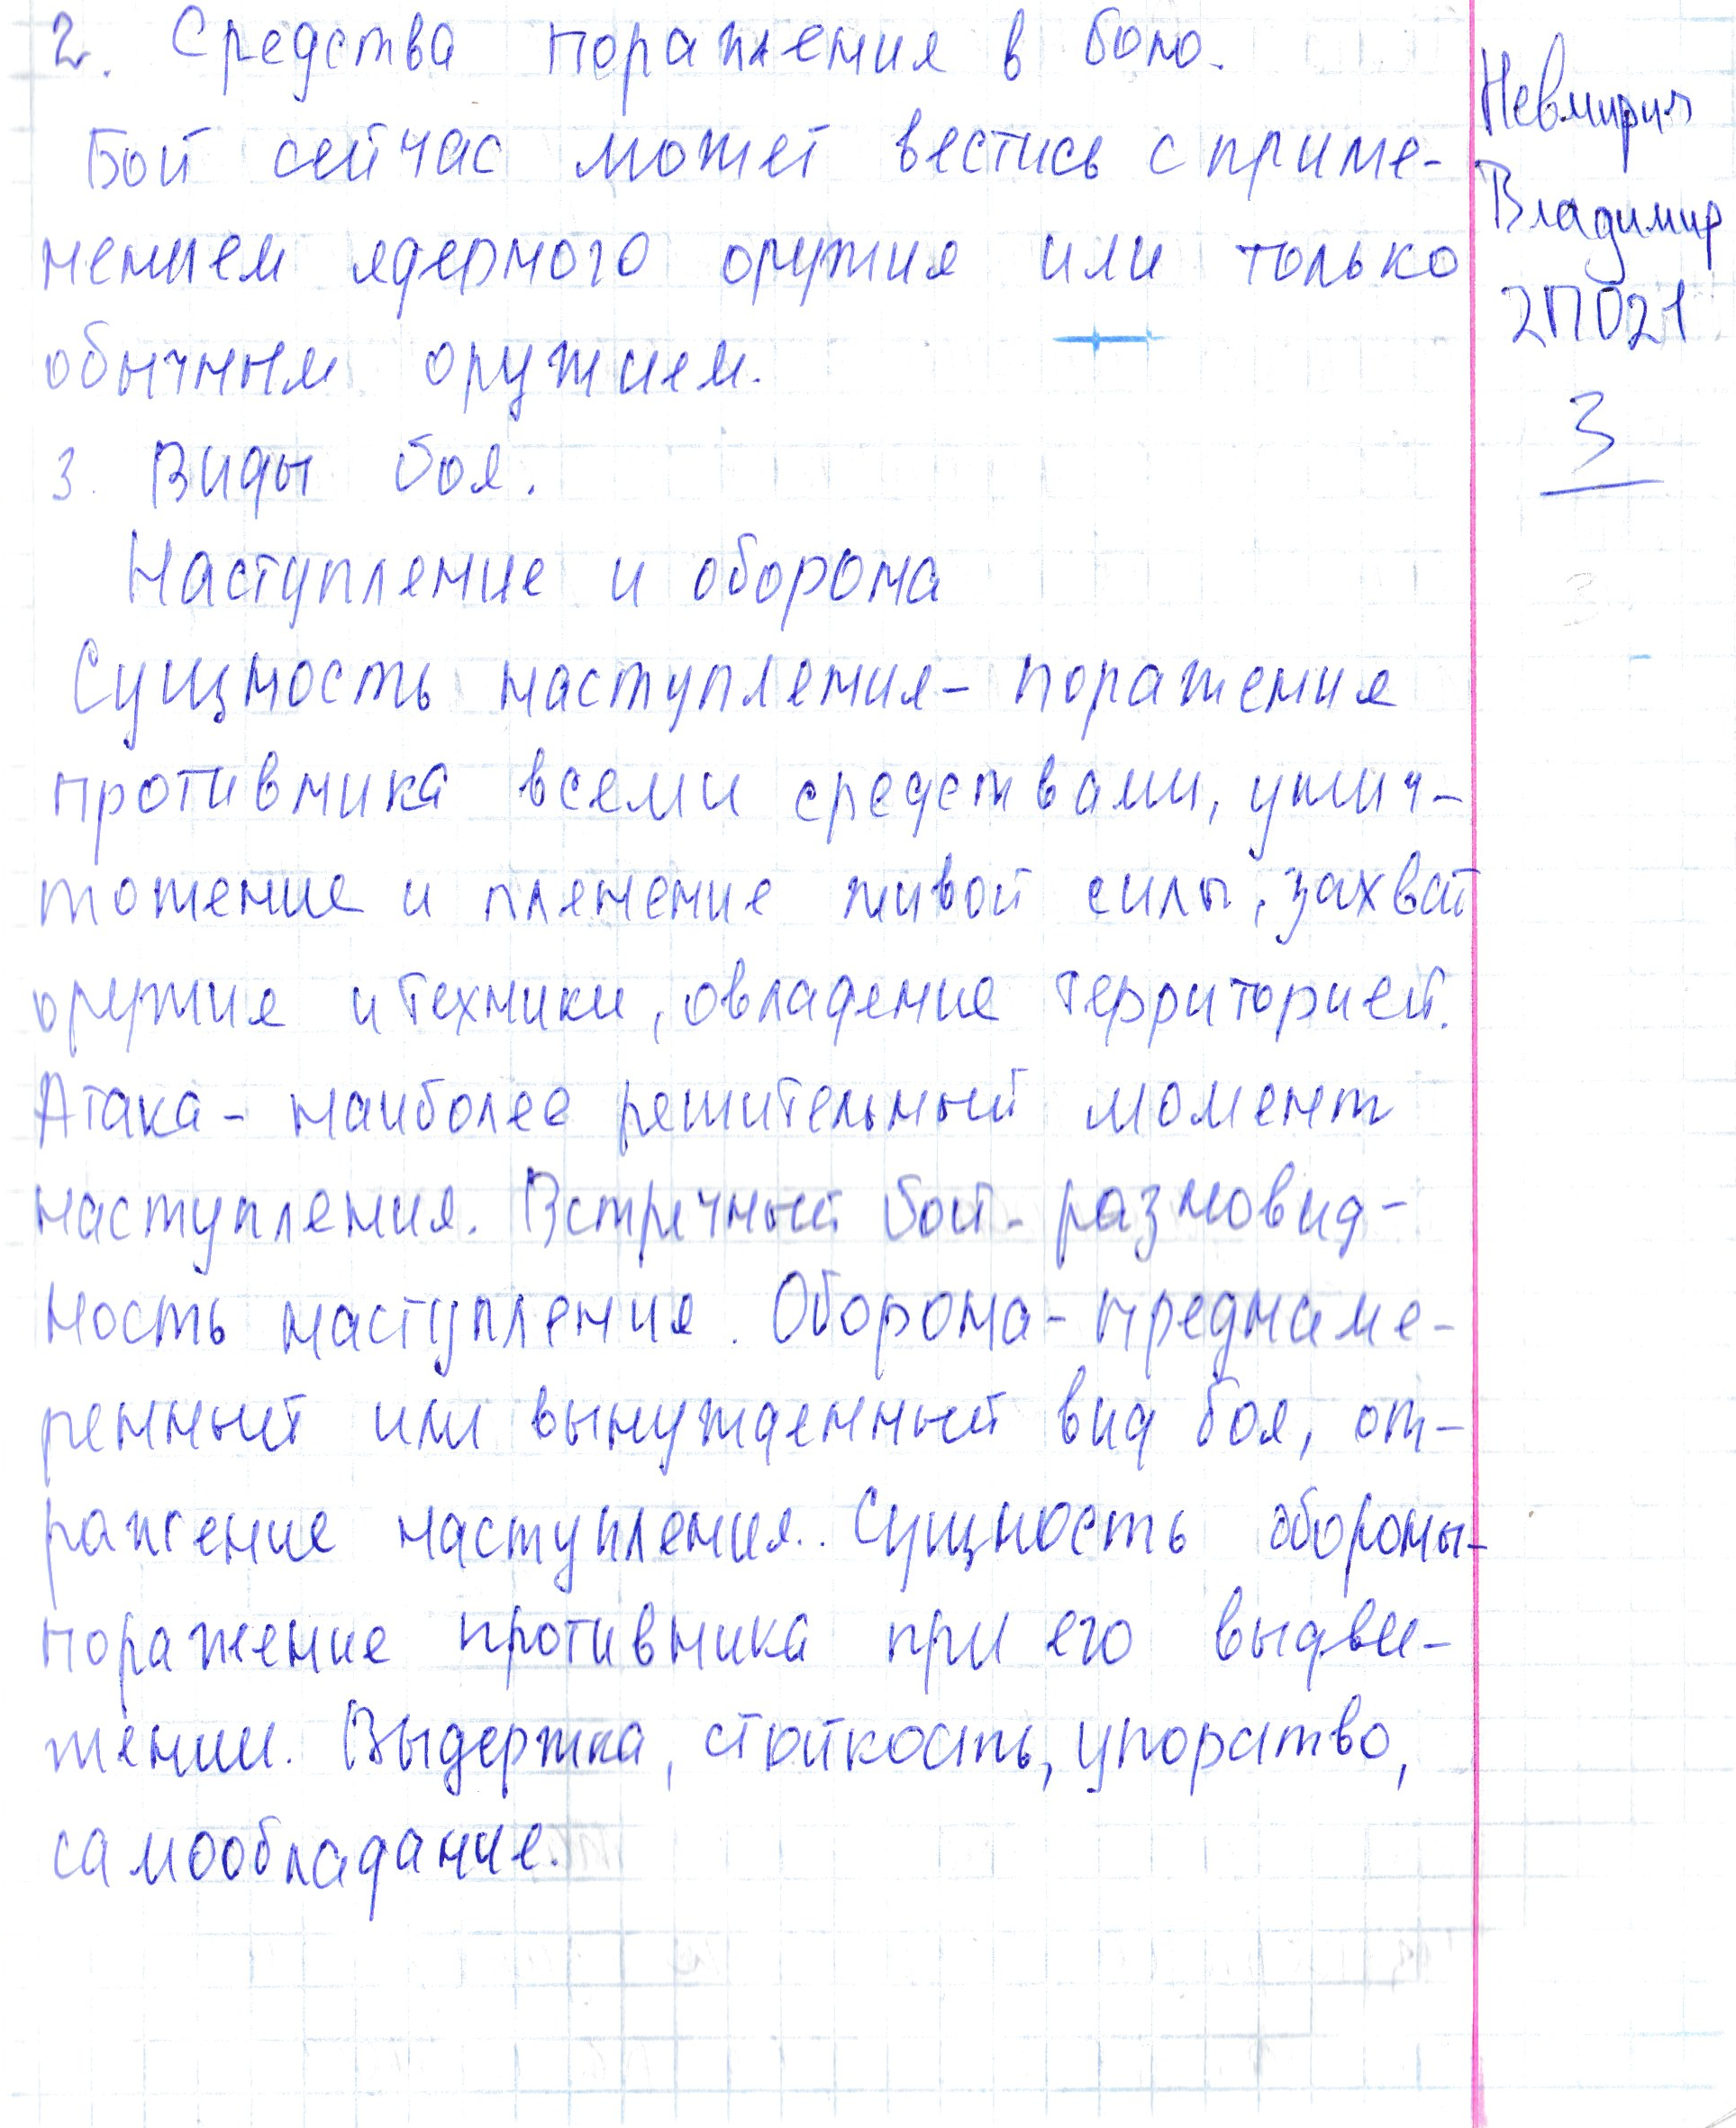 2. Средства поражения в бою.
Бой сейчас может вестись с приме-
нением ядерного оружия или только
обычным оружием.
3. Виды боя.
Наступление и оборона
Сущность наступления - поражения
противника всеми средствами, унич-
тожение и пленение живой силы, захват
оружия и техники, овладение территорией.
Атака - наиболее решительный момент
наступления. Встречный бой - разновид-
ность наступления. Оборона - преднаме-
ренный или вынужденный вид боя, от-
ражение наступления.. Сущность обороны -
поражение противника при его выдви-
жении. Выдержка, стойкость, упорство,
самообладание.
Владимир
2П021
3